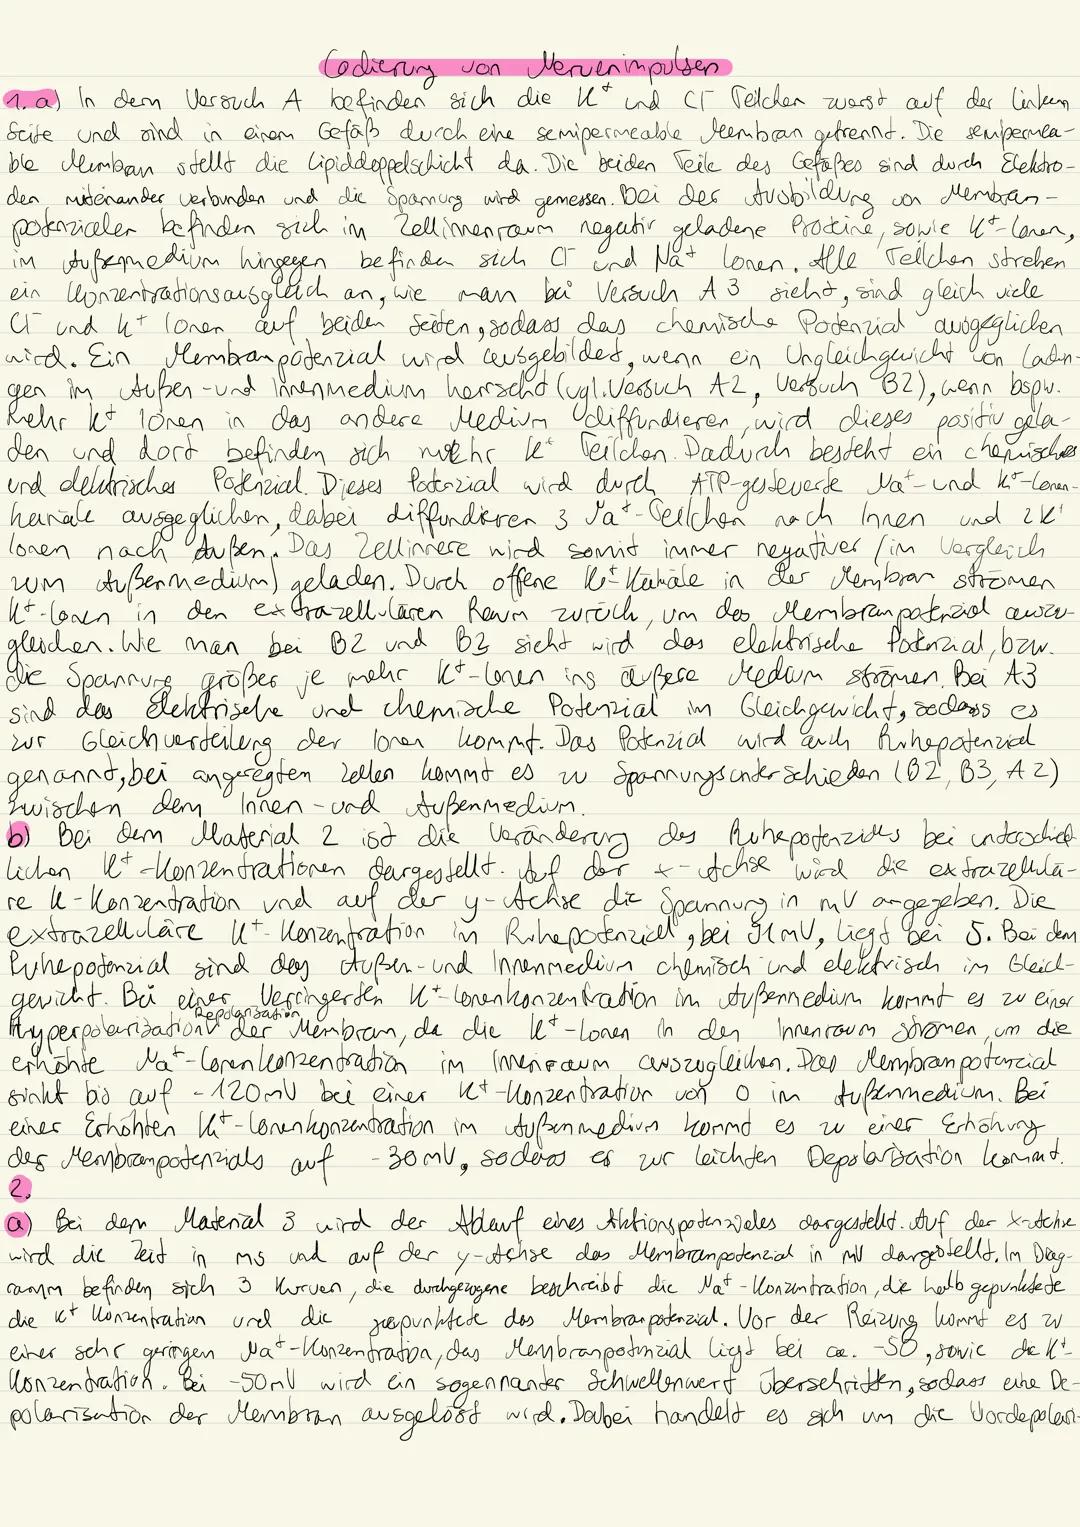 Codierung von Nervenimpulsen
1. a) In dem Versuch A befinden sich die K⁺ und Cl⁻ Teilchen zuerst auf der linken
Seite und sind in einem Gefäß durch eine semipermeable Membran getrennt. Die semipermea-
ble Membran stellt die Lipiddoppelschicht da. Die beiden Teile des Gefäßes sind durch Elektro-
den miteinander verbunden und die Spannung wird gemessen. Bei der Ausbildung von Membran-
potenzialen befinden sich im Zellinnenraum negativ geladene Proteine, sowie K⁺-Ionen,
im Außenmedium hingegen befinden sich Cl⁻ und Na⁺ Ionen. Alle Teilchen streben
ein Konzentrationsausgleich an, wie man bei Versuch A3 sieht, sind gleich viele
Cl⁻ und K⁺ Ionen auf beiden Seiten, sodass das chemische Potenzial ausgeglichen
wird. Ein Membranpotenzial wird ausgebildet, wenn ein Ungleichgewicht von Ladun-
gen im Außen- und Innenmedium herrscht (vgl. Versuch A2, Versuch B2), wenn bspw.
mehr K⁺ Ionen in das andere Medium diffundieren, wird dieses positiv gela-
den und dort befinden sich mehr K⁺ Teilchen. Dadurch besteht ein chemisches
und elektrisches Potenzial. Dieses Potenzial wird durch ATP-gesteuerte Na⁺- und K⁺-Ionen-
kanäle ausgeglichen, dabei diffundieren 3 Na⁺-Teilchen nach Innen und 2 K⁺
Ionen nach Außen. Das Zellinnere wird somit immer negativer (im Vergleich
zum Außenmedium) geladen. Durch offene K⁺-Kanäle in der Membran strömen
K⁺-Ionen in den extrazellulären Raum zurück, um das Membranpotenzial auszu-
gleichen. Wie man bei B2 und B3 sieht wird das elektrische Potenzial, bzw.
die Spannung größer je mehr K⁺-Ionen ins äußere Medium strömen. Bei A3
sind das elektrische und chemische Potenzial im Gleichgewicht, sodass es
zur Gleichverteilung der Ionen kommt. Das Potenzial wird auch Ruhepotenzial
genannt, bei angeregten Zellen kommt es zu Spannungsunterschieden (B2, B3, A2)
zwischen dem Innen- und Außenmedium.
b) Bei dem Material 2 ist die Veränderung des Ruhepotenziales bei unterschied-
lichen K⁺-Konzentrationen dargestellt. Auf der x-Achse wird die extrazellulä-
re K-Konzentration und auf der y-Achse die Spannung in mV angegeben. Die
extrazelluläre K⁺-Konzentration im Ruhepotenzial, bei mV, liegt bei 5. Bei dem
Ruhepotenzial sind das Außen- und Innenmedium chemisch und elektrisch im Gleich-
gewicht. Bei einer Verringerten K⁺-Ionenkonzentration im Außenmedium kommt es zu einer
Repolarisation
Hyperpolarisation der Membran, da die K⁺-Ionen in den Innenraum strömen, um die
erhöhte Na⁺-Ionenkonzentration im Innenraum auszugleichen. Das Membranpotenzial
sinkt bis auf -120mV bei einer K⁺-Konzentration von 0 im Außenmedium. Bei
einer Erhöhten K⁺-Ionenkonzentration im Außenmedium kommt es zu einer Erhöhung
des Membranpotenzials auf -30mV, sodass es zur leichten Depolarisation kommt.
2.
a) Bei dem Material 3 wird der Ablauf eines Aktionspotenziales dargestellt. Auf der x-Achse
wird die Zeit in ms und auf der y-Achse das Membranpotenzial in mV dargestellt. Im Diag-
ramm befinden sich 3 Kurven, die durchgezogene beschreibt die Na⁺-Konzentration, die halb gepunktete
die K⁺ Konzentration und die gepunktete das Membranpotenzial. Vor der Reizung kommt es zu
einer sehr geringen Na⁺-Konzentration, das Membranpotenzial liegt bei ca. -50, sowie die K⁺-
Konzentration. Bei -50mV wird ein sogennanter Schwellenwert überschritten, sodass eine De-
polarisation der Membran ausgelöst wird. Dabei handelt es sich um die Vordepolari-